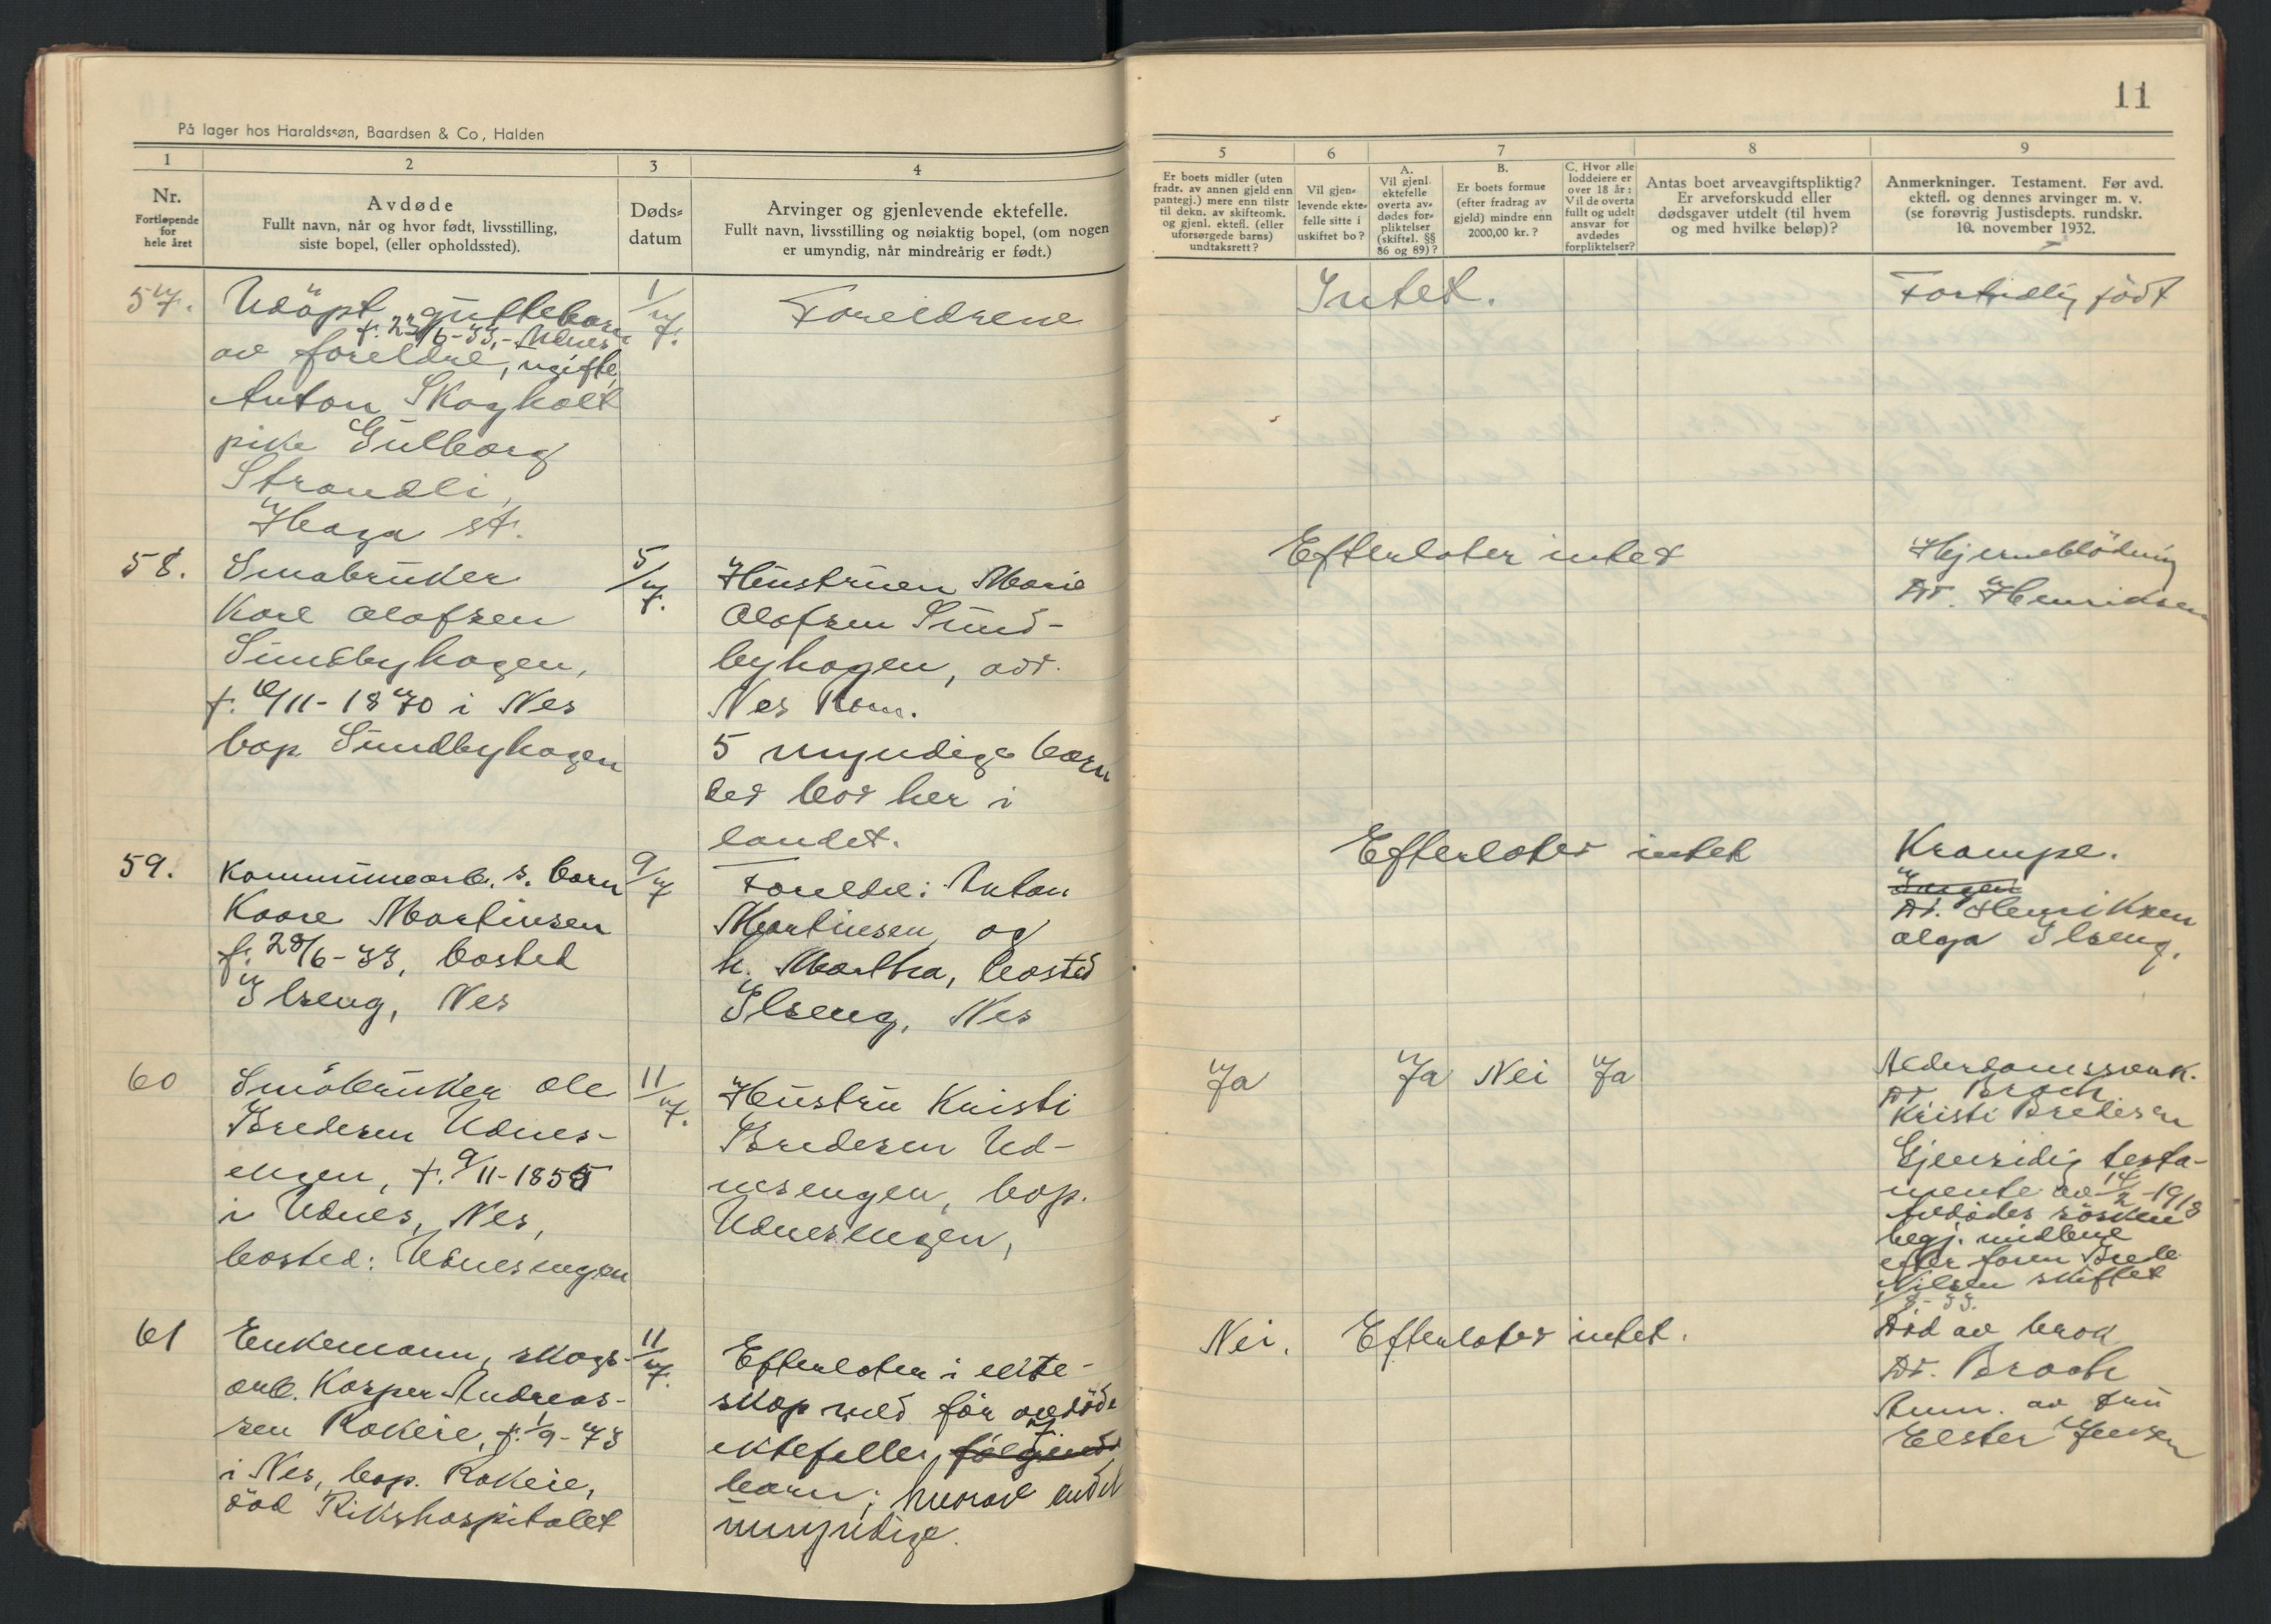 11
På lager hos Haraldssøn, Baardsen & Co, Halden
1
2
3
4
5
6
7
8
9
Nr.
Fortløpende
for
hele året
Avdøde
Fullt navn, når og hvor født, livsstilling,
siste bopel, (eller opholdssted).
Døds-
datum
Arvinger og gjenlevende ektefelle.
Fullt navn, livsstilling og nøiaktig bopel, (om nogen
er umyndig, når mindreårig er født.)
Er boets midler (uten
fradr. av annen gjeld enn
pantegj.) mere enn tilstr
til dekn. av skifteomk.
og gjenl. ektefl. (eller
uforsørgede barns)
undtaksrett?
Vil gjen-
levende ekte-
felle sitte i
uskiftet bo?
A.
Vil gjenl.
ektefelle
overta av-
dødes for-
pliktelser
(skiftel. §§
86 og 89)?
B.
Er boets formue
(efter fradrag av
gjeld) mindre enn
2000,00 kr.?
C. Hvor alle
loddeiere er
over 18 år:
Vil de overta
fullt og udelt
ansvar for
avdødes
forpliktelser?
Antas boet arveavgiftspliktig?
Er arveforskudd eller
dødsgaver utdelt (til hvem
og med hvilke beløp)?
Anmerkninger. Testament. Før avd.
ektefl. og dennes arvinger m. v.
(se forøvrig Justisdepts. rundskr.
10. november 1932.
57.
Udöpt guttebarn
f. 23/6-33, Udnes
av foreldre, ugifte,
Anton Skogholt
pike Gulborg
Strandli,
Haga st.
1/7.
Foreldrene
Intet.
Fortidlig født
58.
Småbruker
Karl Olafsen
Sundbyhagen,
f. 6/11-1870 i Nes
bop. Sundbyhagen
5/7.
Hustruen Marie
Olafsen Sund-
byhagen, adr.
Nes Rom.
5 myndige barn
der bor her i
landet.
Efterlater intet
Hjerneblödning
Dr. Henriksen
59.
Kommunearb. s. barn
Kaare Martinsen
f. 28/6-33, bosted
Ilseng, Nes
9/7
Foreldre: Anton
Martinsen og
h. Martha, bosted
Ilseng, Nes
Efterlater intet
Krampe.
Dr. Henriksen
Olga Ilseng.
60
Småbruker Ole
Bredesen Udnes-
engen, f. 9/11-1855
i Udnes, Nes,
bosted: Udnesengen
11/7.
Hustru Kristi
Bredesen Ud-
nesengen, bop.
Udnesengen,
Ja
Ja
Nei
Ja
Alderdomssvak.
Dr. Broch
Kristi Bredesen
Gjensidig testa-
mente av 14/2-1918
Avdødes søsken
begj. midlene
efter faren Brede
Nilsen skiftet
1/8-33.
61
Enkemann, skogs-
arb. Kasper Andreas-
sen Rokeie, f. 1/9-73
i Nes, bop. Rokeie,
död Rikshospitalet
11/7.
Efterlater i ekte-
skap med før avdöde
ektefelle, 7 følgende
barn; hvorav endel
umyndige.
Nei.
Efterlater intet.
Död av brok
Dr. Broch
Anm. av fru
Elster Jensen